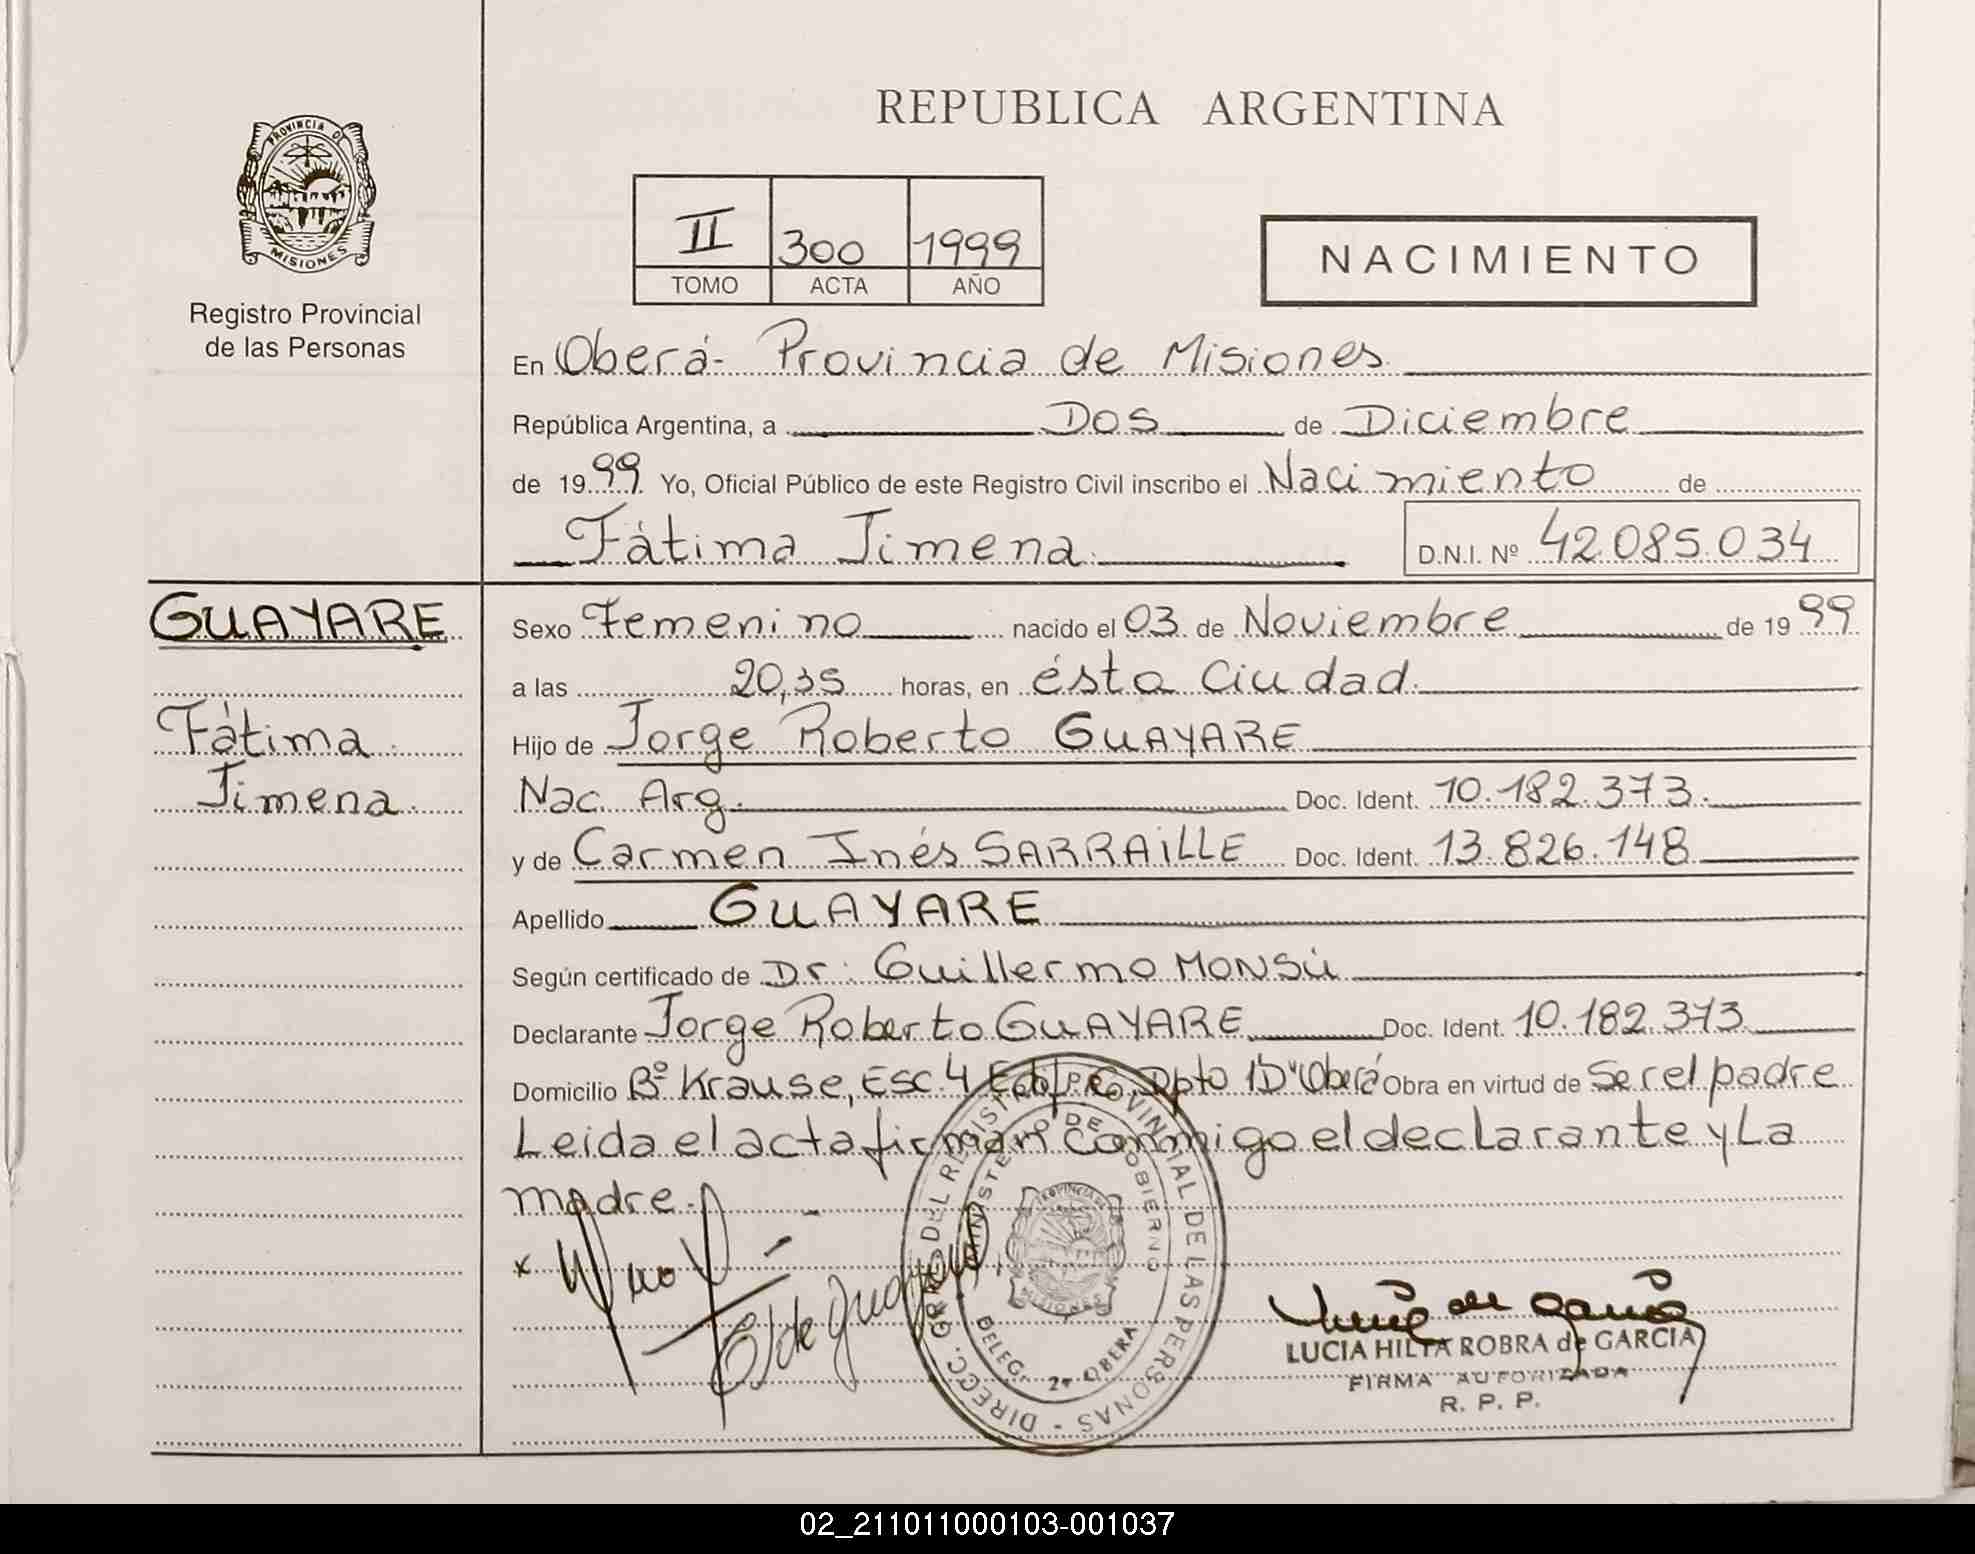 REPUBLICA ARGENTINA
PROVINCIA DE
MISIONES
Registro Provincial
de las Personas
II 300 1999
TOMO ACTA AÑO
NACIMIENTO
En Oberá- Provincia de Misiones
República Argentina, a Dos de Diciembre
de 1999 Yo, Oficial Público de este Registro Civil inscribo el Nacimiento de
Fátima Jimena D.N.I. Nº 42.085.034
GUAYARE
Fátima
Jimena
Sexo Femenino nacido el 03 de Noviembre de 1999
a las 20,35 horas, en ésta Ciudad
Hijo de Jorge Roberto GUAYARE
Nac. Arg. Doc. Ident. 10.182.373.
y de Carmen Inés SARRAiLLE Doc. Ident. 13.826.148
Apellido GUAYARE
Según certificado de Dr. Guillermo MONSÚ
Declarante Jorge Roberto GUAYARE Doc. Ident. 10.182.373
Domicilio Bº Krause, Esc. 4 Edif. C, Dpto 1"D" Oberá Obra en virtud de Ser el padre
Leida el acta firman conmigo el declarante y La
madre.
DIRECC. GRAL. DEL REGISTRO PROVINCIAL DE LAS PERSONAS -
MINISTERIO DE GOBIERNO
PROVINCIA DE
MISIONES
DELEG. 2ª OBERA
LUCIA HILTA ROBRA de GARCIA
FIRMA AUTORIZADA
R. P. P.
02_211011000103-001037